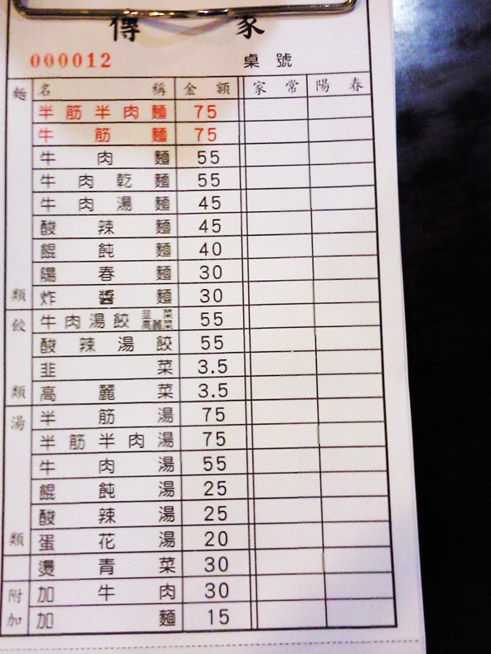 傳 家
000012 桌號
麵 名稱 金額 家常 陽春
半筋半肉麵 75
牛筋麵 75
牛肉麵 55
牛肉乾麵 55
牛肉湯麵 45
酸辣麵 45
餛飩麵 40
陽春麵 30
類 炸醬麵 30
餃 牛肉湯餃 韭菜 高麗菜 55
酸辣湯餃 55
韭菜 3.5
類 高麗菜 3.5
湯 半筋湯 75
半筋半肉湯 75
牛肉湯 55
餛飩湯 25
酸辣湯 25
類 蛋花湯 20
燙青菜 30
附 加牛肉 30
加 加麵 15